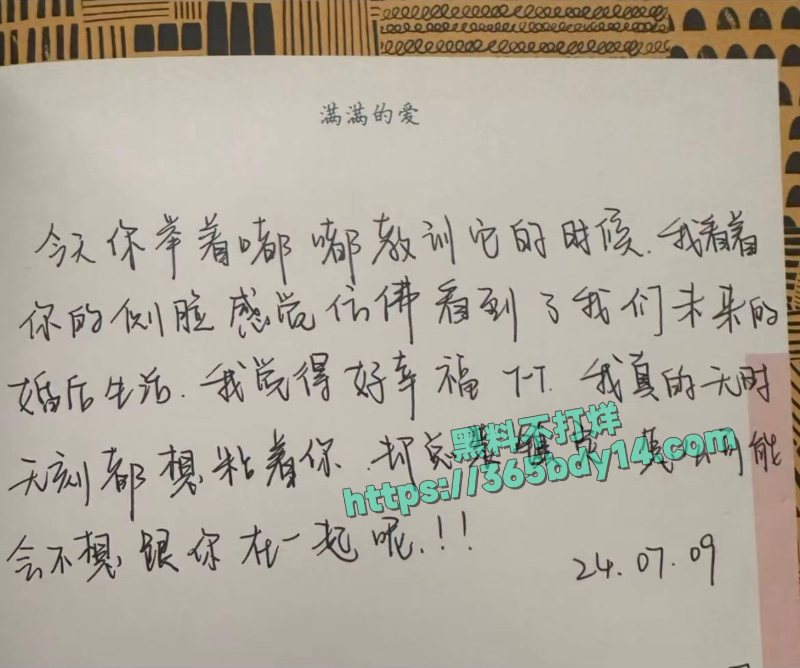 满满的爱
今天你举着嘟嘟教训它的时候.我看着
你的侧脸感觉仿佛看到了我们未来的
婚后生活.我觉得好幸福T-T.我真的无时
无刻都想粘着你.却总 可能
黑料不打烊
https://365bdy14.com
会不想跟你在一起呢!!!
24.07.09